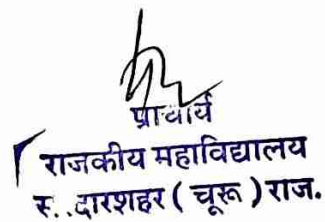 प्राचार्य
राजकीय महाविद्यालय
स..दारशहर ( चूरू ) राज.